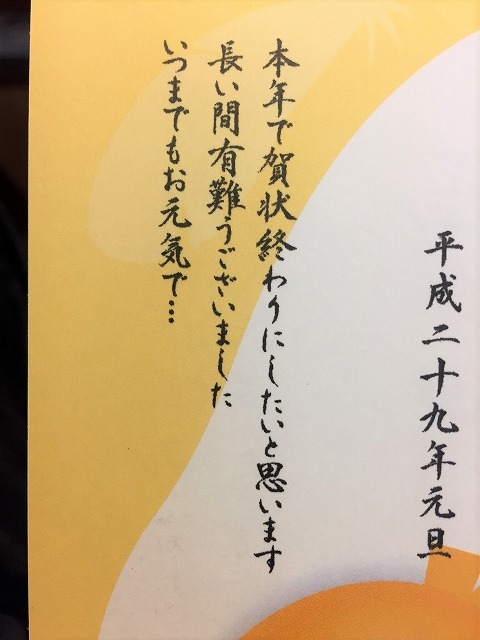 平成二十九年元旦
本年で賀状終わりにしたいと思います
長い間有難うございました
いつまでもお元気で…